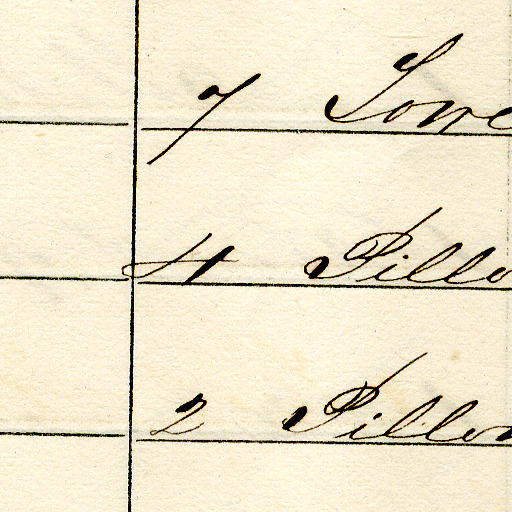 7 Towe
4 Pillo
2 Pillow